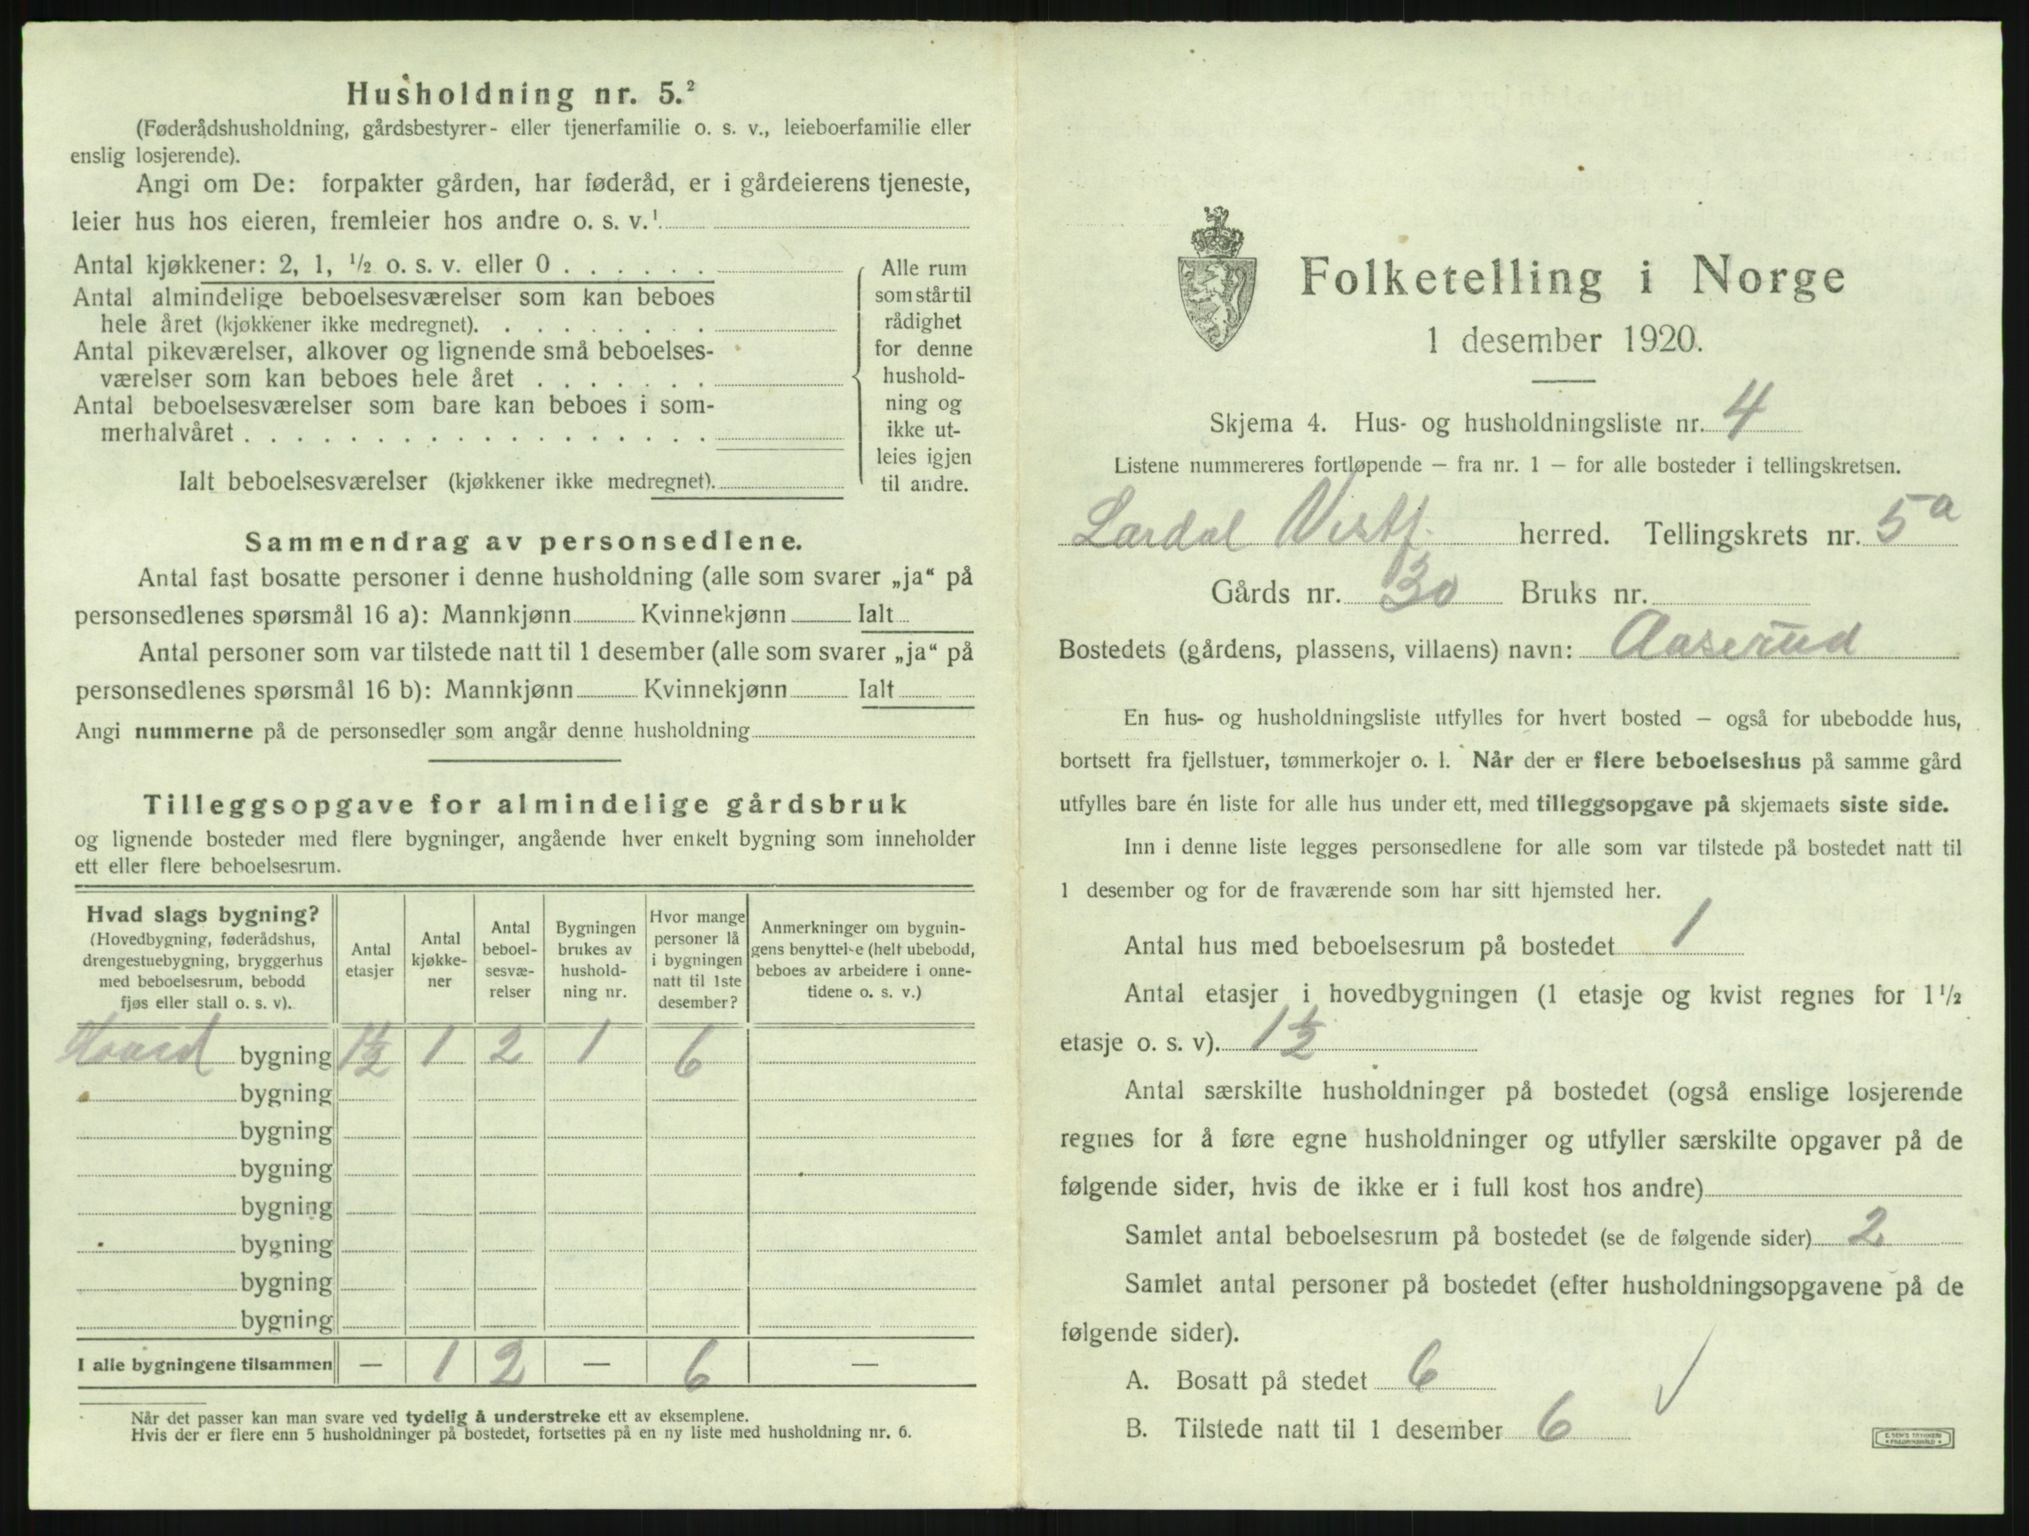 Husholdning nr. 5.²
(Føderådshusholdning, gårdsbestyrer- eller tjenerfamilie o. s. v., leieboerfamilie eller
enslig losjerende).
Angi om De: forpakter gården, har føderåd, er i gårdeierens tjeneste,
leier hus hos eieren, fremleier hos andre o. s. v.¹
Antal kjøkkener: 2, 1, ½ o. s. v. eller 0 . . . . . .
Antal almindelige beboelsesværelser som kan beboes
hele året (kjøkkener ikke medregnet). . . . . . . . .
Antal pikeværelser, alkover og lignende små beboelses-
værelser som kan beboes hele året . . . . . . .
Antal beboelsesværelser som bare kan beboes i som-
merhalvåret . . . . . . . . . . . . . . . . . .
Ialt beboelsesværelser (kjøkkener ikke medregnet).
Alle rum
som står til
rådighet
for denne
hushold-
ning og
ikke ut-
leies igjen
til andre.
Sammendrag av personsedlene.
Antal fast bosatte personer i denne husholdning (alle som svarer „ja“ på
personsedlenes spørsmål 16 a): Mannkjønn Kvinnekjønn Ialt
Antal personer som var tilstede natt til 1 desember (alle som svarer „ja“ på
personsedlenes spørsmål 16 b): Mannkjønn Kvinnekjønn Ialt
Angi nummerne på de personsedler som angår denne husholdning
Tilleggsopgave for almindelige gårdsbruk
og lignende bosteder med flere bygninger, angående hver enkelt bygning som inneholder
ett eller flere beboelsesrum.
Hvad slags bygning?
(Hovedbygning, føderådshus,
drengestuebygning, bryggerhus
med beboelsesrum, bebodd
fjøs eller stall o. s. v).
Antal
etasjer
Antal
kjøkke-
ner
Antal
beboel-
sesvæ-
relser
Bygningen
brukes av
hushold-
ning nr.
Hvor mange
personer lå
i bygningen
natt til 1ste
desember?
Anmerkninger om bygnin-
gens benyttelse (helt ubebodd,
beboes av arbeidere i onne-
tidene o. s. v.)
bygning 1½ 1 2 1 6
bygning
bygning
bygning
bygning
bygning
bygning
bygning
I alle bygningene tilsammen — 1 2 — 6 —
Når det passer kan man svare ved tydelig å understreke ett av eksemplene.
Hvis der er flere enn 5 husholdninger på bostedet, fortsettes på en ny liste med husholdning nr. 6.
Folketelling i Norge
1 desember 1920.
Skjema 4. Hus- og husholdningsliste nr. 4
Listene nummereres fortløpende — fra nr. 1 — for alle bosteder i tellingskretsen.
Lardal Vestf. herred. Tellingskrets nr. 5a
Gårds nr. 30 Bruks nr.
Bostedets (gårdens, plassens, villaens) navn: Aaserud
En hus- og husholdningsliste utfylles for hvert bosted — også for ubebodde hus,
bortsett fra fjellstuer, tømmerkojer o. l. Når der er flere beboelseshus på samme gård
utfylles bare én liste for alle hus under ett, med tilleggsopgave på skjemaets siste side.
Inn i denne liste legges personsedlene for alle som var tilstede på bostedet natt til
1 desember og for de fraværende som har sitt hjemsted her.
Antal hus med beboelsesrum på bostedet 1
Antal etasjer i hovedbygningen (1 etasje og kvist regnes for 1½
etasje o. s. v). 1½
Antal særskilte husholdninger på bostedet (også enslige losjerende
regnes for å føre egne husholdninger og utfyller særskilte opgaver på de
følgende sider, hvis de ikke er i full kost hos andre)
Samlet antal beboelsesrum på bostedet (se de følgende sider) 2
Samlet antal personer på bostedet (efter husholdningsopgavene på de
følgende sider).
A. Bosatt på stedet 6
B. Tilstede natt til 1 desember 6